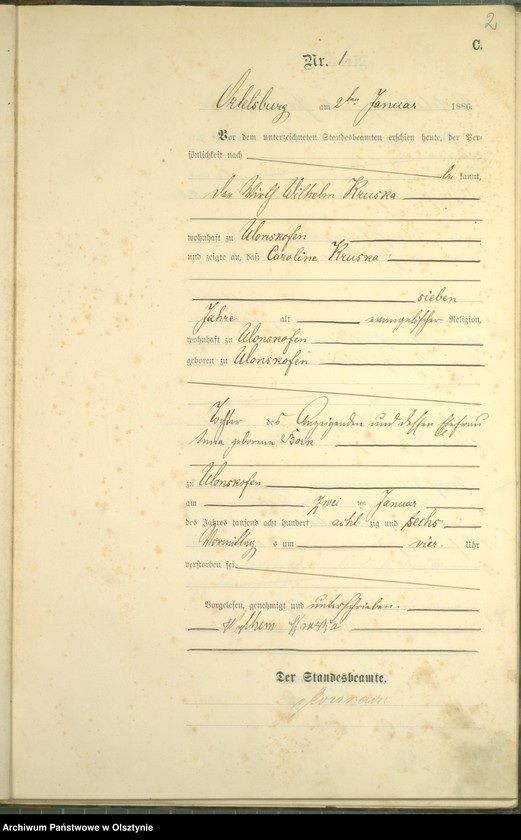 2
C.
Nr. 1
Ortelsburg am 2ten Januar 1886.
Vor dem unterzeichneten Standesbeamten erschien heute, der Per-
sönlichkeit nach
be kannt,
der Wirth Wilhelm Kruska
wohnhaft zu Ulonskofen
und zeigte an, daß Caroline Kruska
sieben
Jahre alt evangelischer Religion,
wohnhaft zu Ulonskofen
geboren zu Ulonskofen
Tochter des Anzeigenden und dessen Ehefrau
Anna geborene
zu Ulonskofen
am zwei ten Januar
des Jahres tausend acht hundert acht zig und sechs
Vormittag s um vier Uhr
verstorben sei
Vorgelesen, genehmigt und unterschrieben.
Wylhem Kruska
Der Standesbeamte.
Archiwum Państwowe w Olsztynie